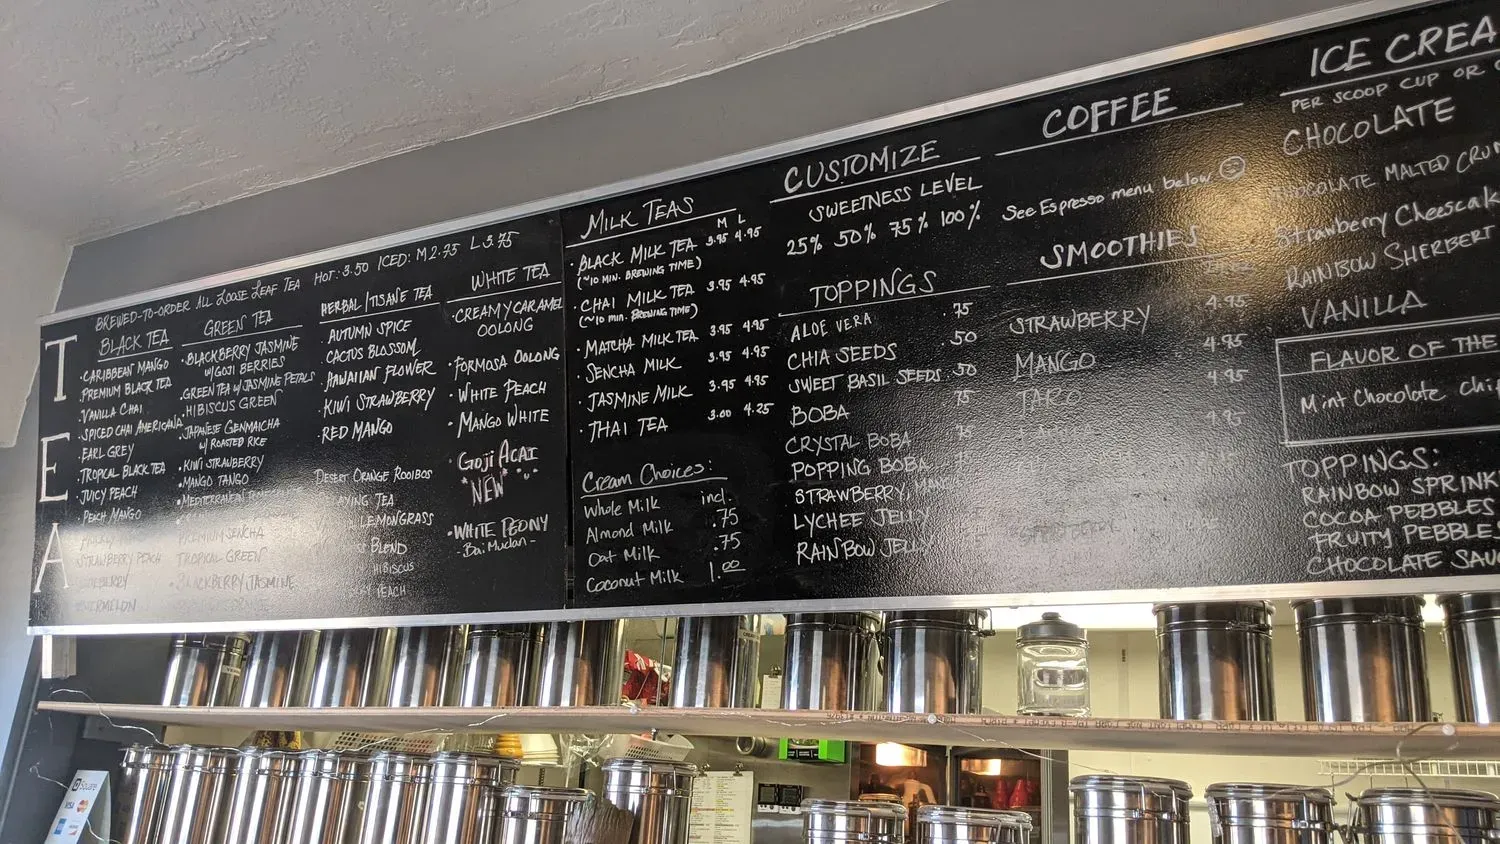 TEA
BREWED-TO-ORDER ALL LOOSE LEAF TEA HOT: 3.50 ICED: M 2.75 L 3.75
BLACK TEA
• CARIBBEAN MANGO
• PREMIUM BLACK TEA
• VANILLA CHAI
• SPICED CHAI AMERICANA
• EARL GREY
• TROPICAL BLACK TEA
• JUICY PEACH
• PEACH MANGO
STRAWBERRY PEACH
GREEN TEA
• BLACKBERRY JASMINE
W/GOJI BERRIES
• GREEN TEA W/ JASMINE PETALS
• HIBISCUS GREEN
• JAPANESE GENMAICHA
W/ ROASTED RICE
• KIWI STRAWBERRY
• MANGO TANGO
• MEDITERRANEAN
PREMIUM SENCHA
TROPICAL GREEN
• BLACKBERRY JASMINE
HERBAL/TISANE TEA
AUTUMN SPICE
• CACTUS BLOSSOM
• HAWAIIAN FLOWER
• KIWI STRAWBERRY
• RED MANGO
DESERT ORANGE ROOIBOS
TEA
LEMONGRASS
BLEND
HIBISCUS
PEACH
WHITE TEA
• CREAMY CARAMEL
OOLONG
• FORMOSA OOLONG
• WHITE PEACH
• MANGO WHITE
GOJI ACAI
NEW
• WHITE PEONY
- Bai Mudan -
MILK TEAS
M L
• BLACK MILK TEA 3.95 4.95
(~10 MIN. BREWING TIME)
• CHAI MILK TEA 3.95 4.95
(~10 min. BREWING TIME)
• MATCHA MILK TEA 3.95 4.95
• SENCHA MILK 3.95 4.95
• JASMINE MILK 3.95 4.95
• THAI TEA 3.00 4.25
Cream Choices:
Whole Milk incl.
Almond Milk .75
Oat Milk .75
Coconut Milk 1.00
CUSTOMIZE
SWEETNESS LEVEL
25% 50% 75% 100%
TOPPINGS
ALOE VERA .75
CHIA SEEDS .50
SWEET BASIL SEEDS .50
BOBA .75
CRYSTAL BOBA
POPPING BOBA
STRAWBERRY,
LYCHEE JELLY
RAINBOW JELLY
COFFEE
See Espresso menu below
SMOOTHIES
STRAWBERRY 4.95
MANGO 4.95
TARO 4.95
4.95
ICE CREA
PER SCOOP CUP OR
CHOCOLATE
CHOCOLATE MALTED CRUN
Strawberry Cheesecak
RAINBOW SHERBERT
VANILLA
FLAVOR OF THE
Mint Chocolate Chi
TOPPINGS:
RAINBOW SPRINK
COCOA PEBBLES
FRUITY PEBBLES
CHOCOLATE SAU
Square
VISA